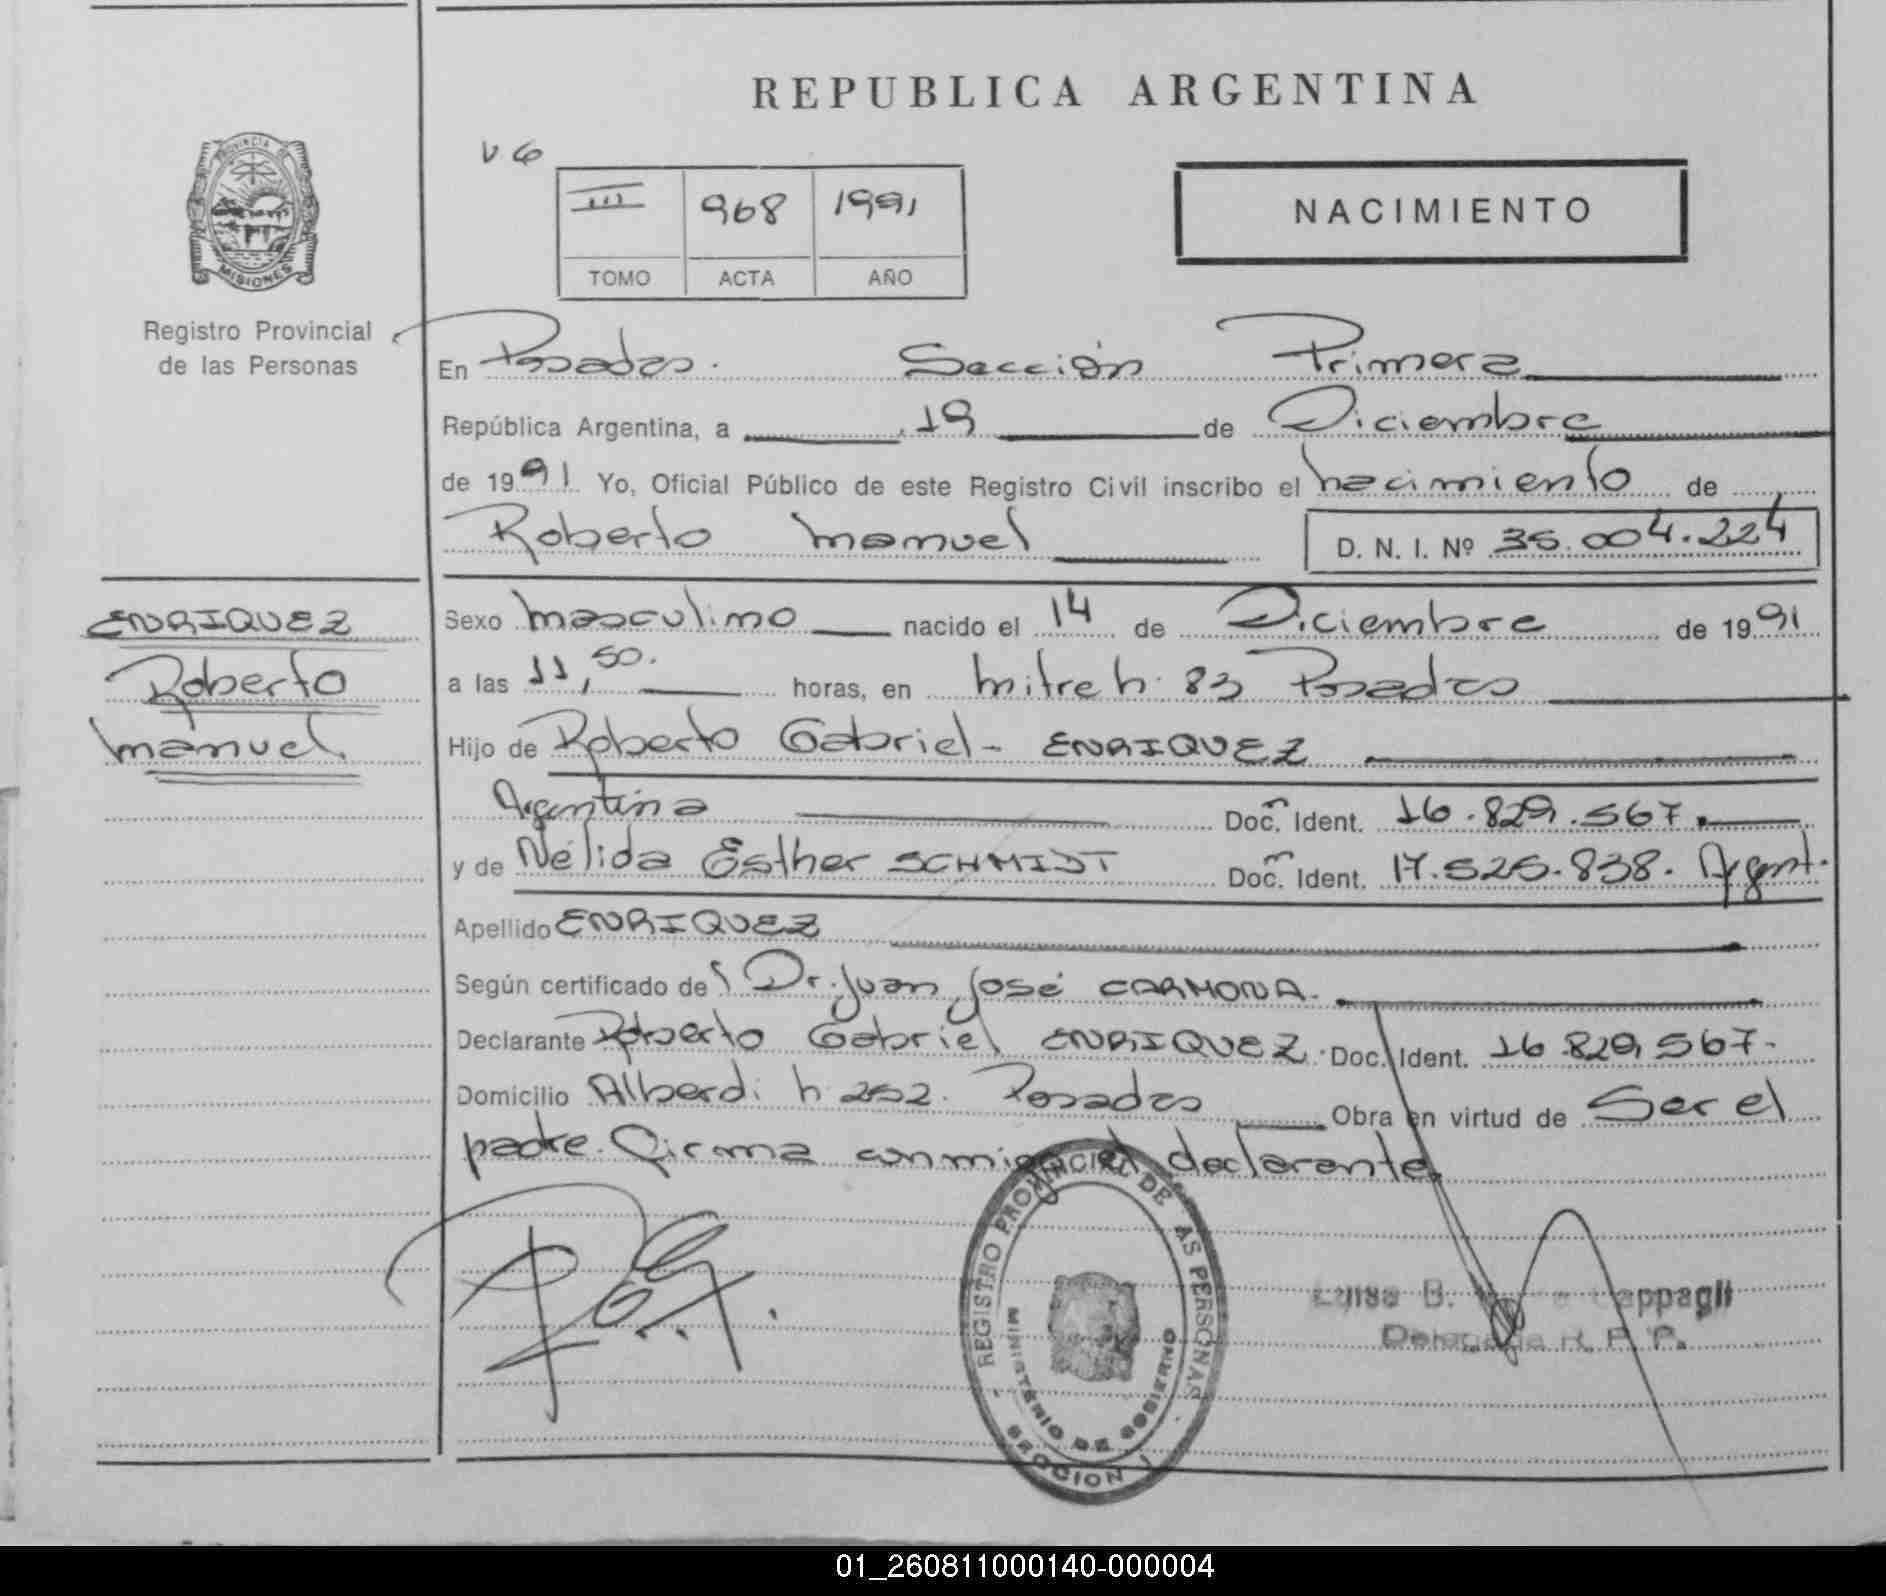 REPUBLICA ARGENTINA
V 6
PROVINCIA DE
MISIONES
III 968 1991
TOMO ACTA AÑO
NACIMIENTO
Registro Provincial
de las Personas
En Posadas. Sección Primera
República Argentina, a 19 de Diciembre
de 1991 Yo, Oficial Público de este Registro Civil inscribo el nacimiento de
Roberto Manuel D. N. I. Nº 36.004.224
ENRIQUEZ
Roberto
Manuel
Sexo masculino nacido el 14 de Diciembre de 1991
a las 11,50. horas, en Mitre n: 83 Posadas
Hijo de Roberto Gabriel - ENRIQUEZ
Argentina Doc. Ident. 16.829.567.
y de Nélida Esther SCHMIDT Doc. Ident. 17.525.838. Argent.
Apellido ENRIQUEZ
Según certificado de Dr. Juan José CARMONA.
Declarante Roberto Gabriel ENRIQUEZ. Doc. Ident. 16.829,567.
Domicilio Alberdi n 252. Posadas Obra en virtud de Ser el
padre. Firma conmigo el declarante.
REGISTRO PROVINCIAL DE LAS PERSONAS
MINISTERIO DE GOBIERNO
SECCION 1
Luisa B. Cappagli
Delegada R. P. P.
01_260811000140-000004